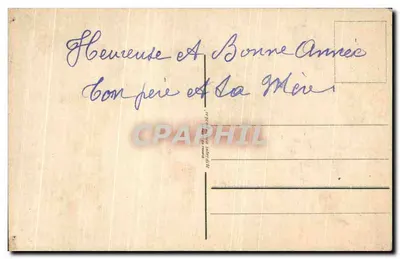 Heureuse et Bonne Année
Ton père et ta Mère
CPHRTH